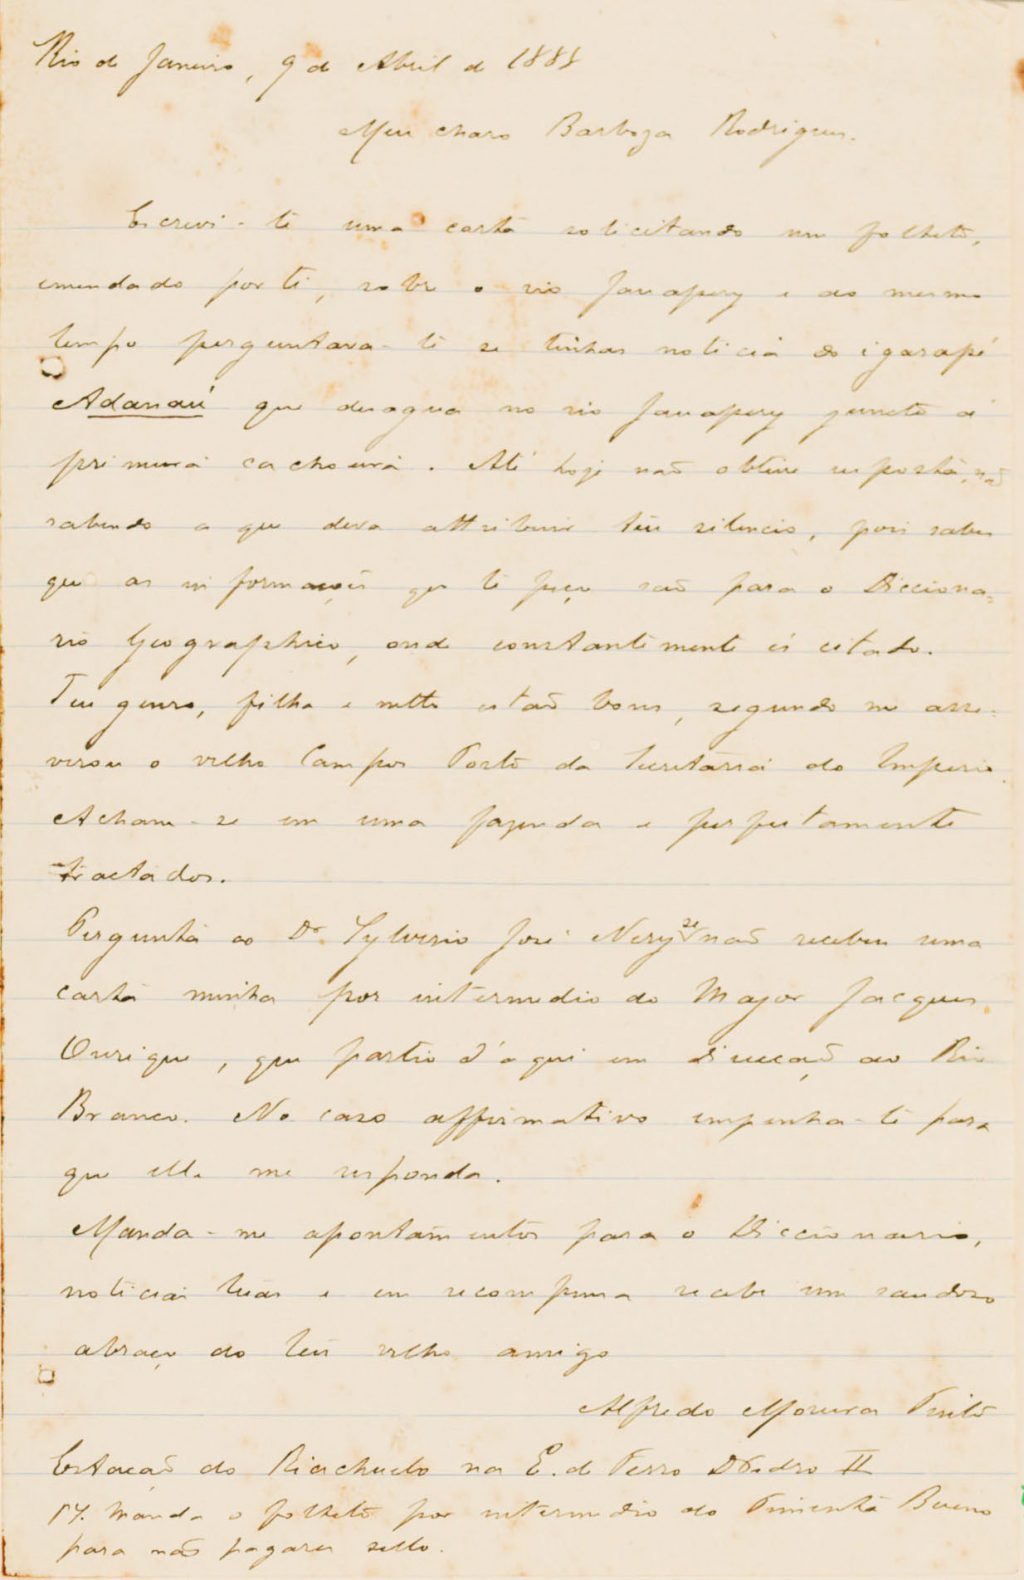 Rio de Janeiro, 9 de Abril de 1888
Meu charo Barboza Rodrigues.
Escrevi-te uma carta solicitando um folheto,
emendado por ti, sobre o rio Jauapery e ao mesmo
tempo perguntava-te se tinhas noticia do igarapé
Adanaú que desagua no rio Jauapery juncto á
primeira cachoeira. Até hoje não obtive resposta, não
sabendo a que deva attribuir teu silencio, pois sabes
que as informações que te peço são para o Dicciona-
rio Geographico, onde constantemente és citado.
Teu genro, filha e netto estão bons, segundo me asse-
verou o velho Campos Porto da Secretaria do Imperio.
Acham-se em uma fazenda e perfeitamente
tractados.
Pergunta ao Dr. Sylverio José Nery se não recebeu uma
carta minha por intermedio do Major Jacques
Ourique, que partio d'aqui em direcção ao Rio
Branco. No caso affirmativo empenha-te para
que elle me responda.
Manda-me apontamentos para o Diccionario,
noticias tuas e em recompensa recebe um saudoso
abraço do teu velho amigo
Alfredo Moreira Pinto
Estação do Riachuelo na E. de Ferro D Pedro II
Manda o folheto por intermedio do Pimenta Bueno
para não pagares sello.